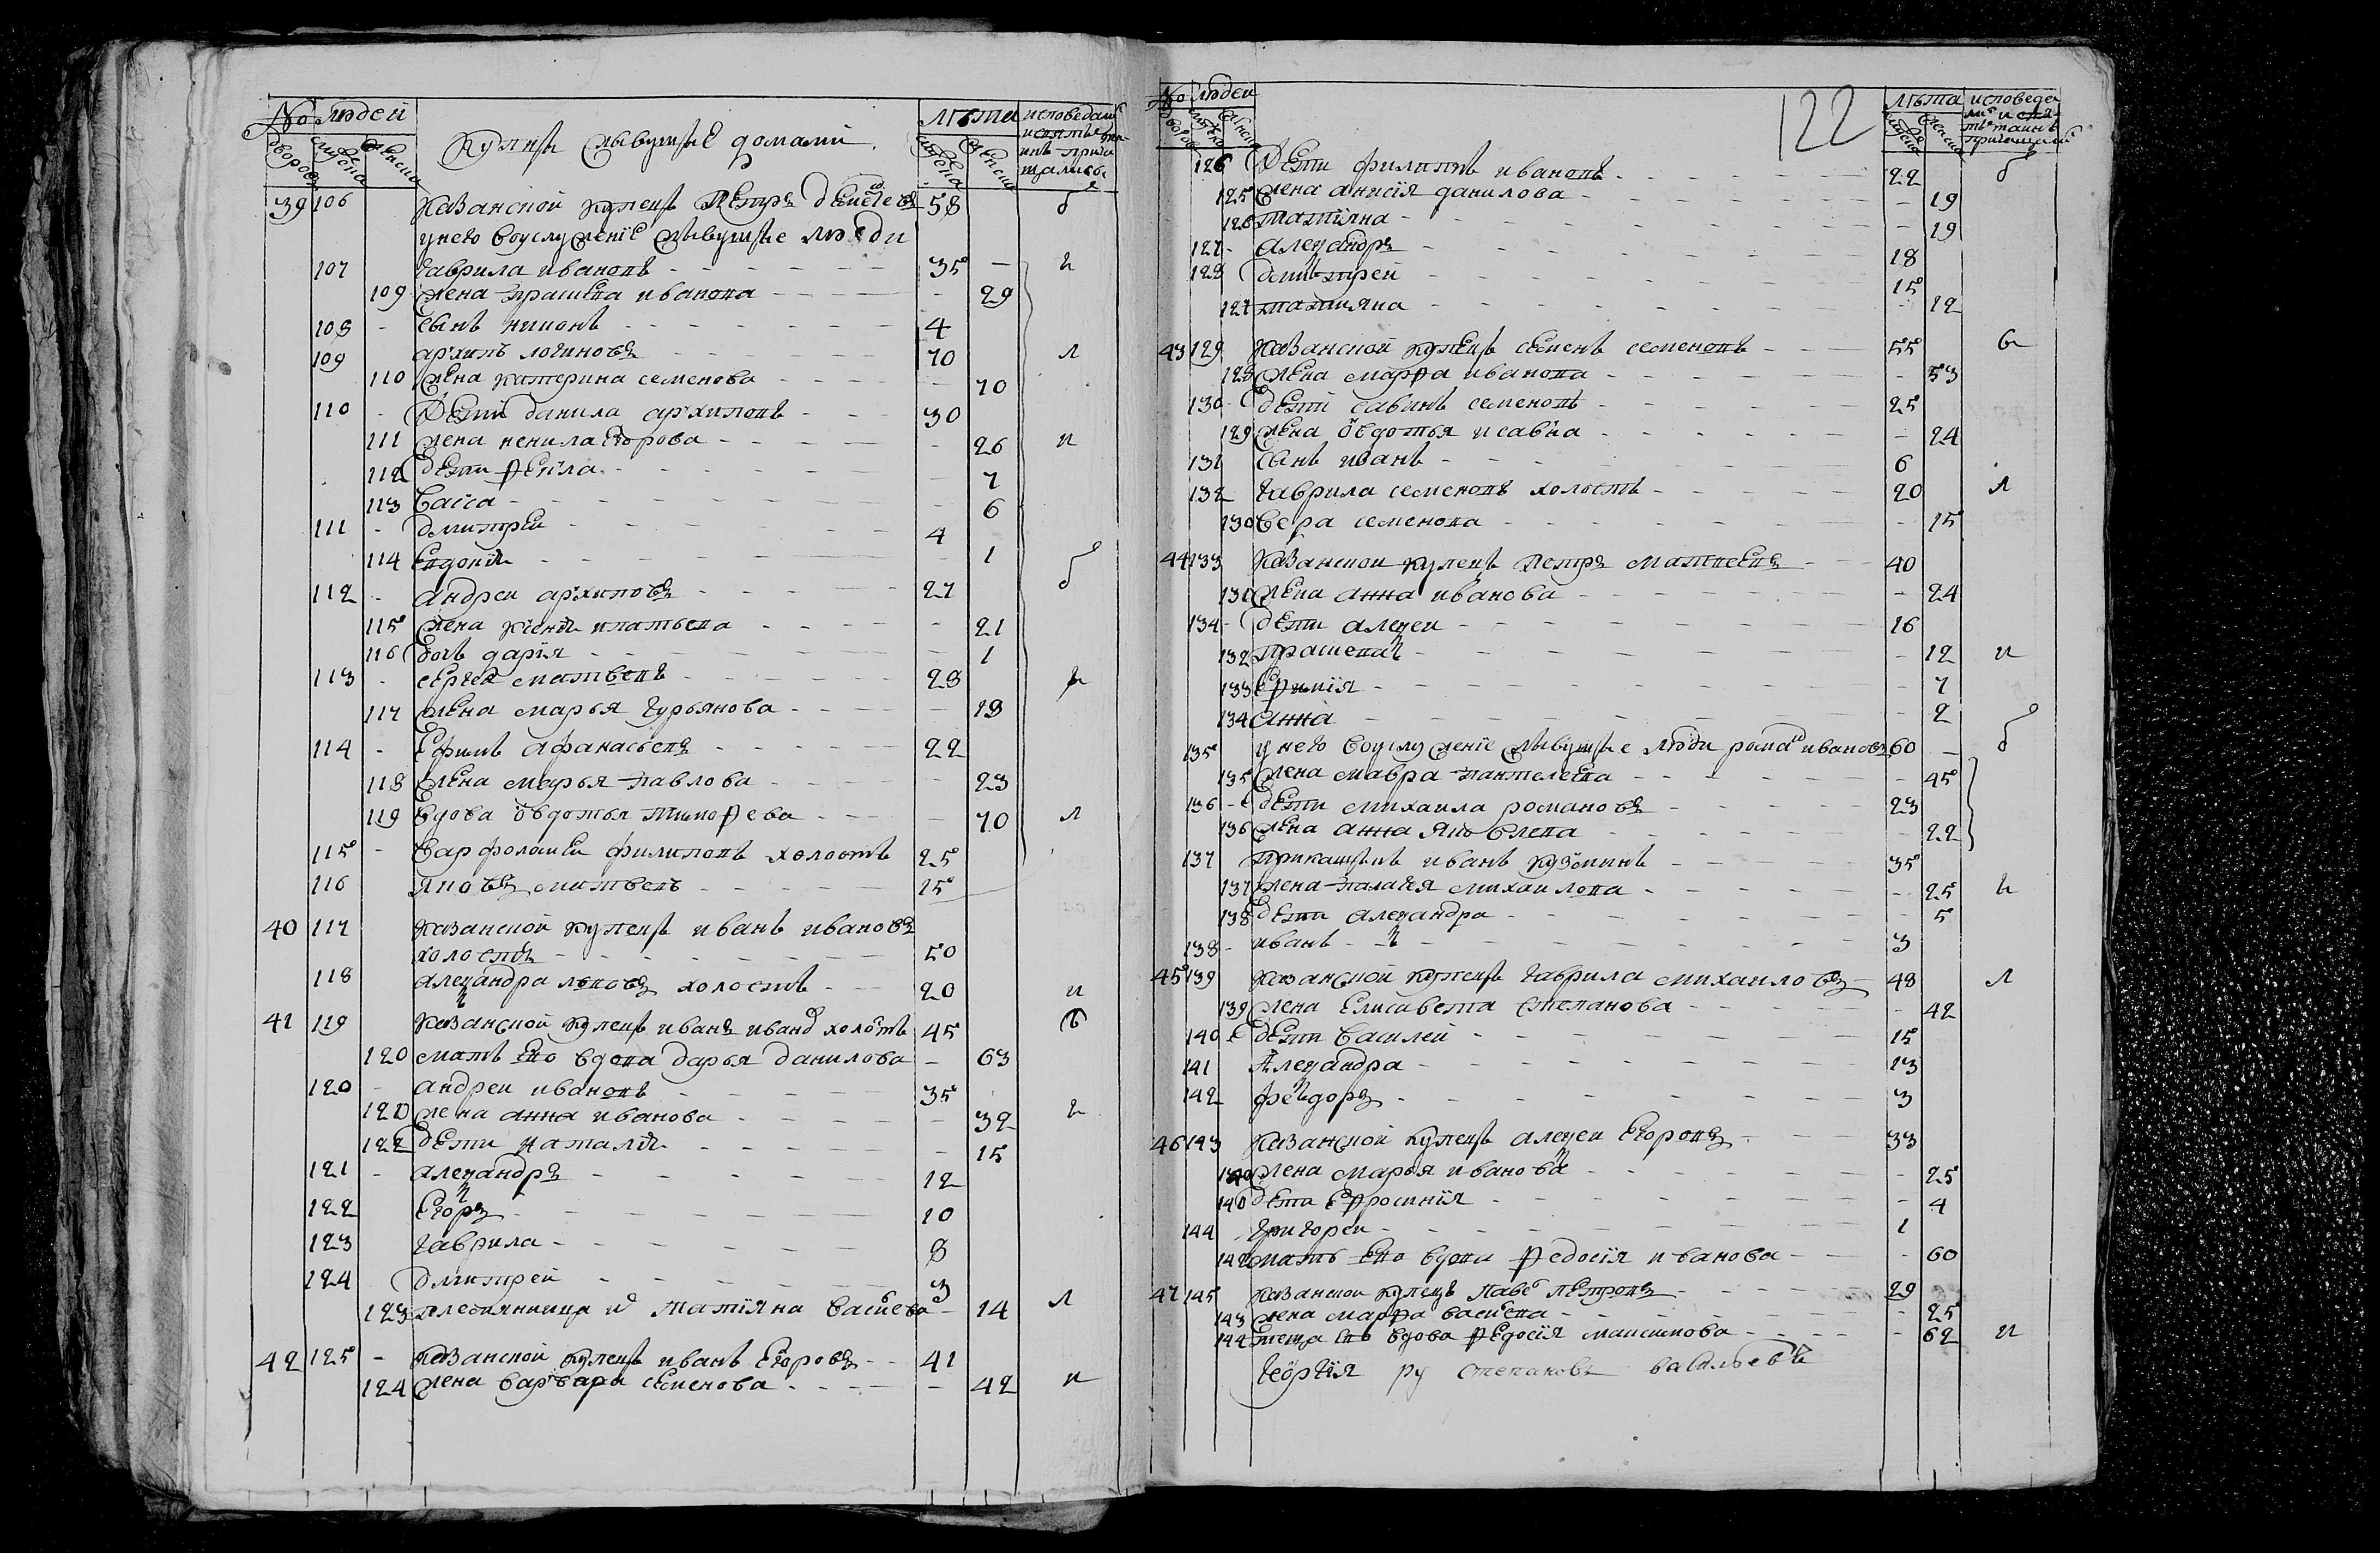 № людей
дворов мужеска женска
Купцы живущые домами
лѣта
мужеска женска
исповедалис и святых таинъ прича щались
39 106 Казанской купецъ Петръ 58 б
у него воуслужениіе живущые люди
107 Гаврила ивановъ 35 и
109 жена прасковья иванова 29
108 сынъ никонъ 4
109 архипъ логиновъ 70 л
110 жена катерина семенова 70
110 Дети данила архиповъ 30
111 жена ненила егорова 26 и
112 дети фекла 7
113 васса 6
111 дмитрей 4
114 евдокия 1
112 андреи архиповъ 27 б
115 жена игнатьева 21
116 дочь дарія 1
113 сергей матвеевъ 28 и
117 жена марья гурьянова 19
114 ефимъ афанасьевъ 22
118 жена марья павлова 23
119 вдова овдотья тимофеева 70 л
115 варфоломеи филиповъ холостъ 25
116 яковъ матвеевъ 15
40 117 казанской купецъ иванъ ивановъ
холостъ 50
118 александра львовъ холостъ 20 и
41 119 казанской купецъ иванъ иванов холостъ 45 б
120 мать ево вдова дарья данилова 63
120 андреи ивановъ 35
121 жена анна иванова 32 и
122 дети наталия 15
121 александръ 12
122 егоръ 10
123 гаврила 8
124 дмитреи 3
123 племянница их татіяна васильева 14 л
42 125 казанской купецъ иванъ егоровъ 41
124 жена варвара семенова 42 и
122
№ людеи
дворов мужеска женска
лѣта
мужеска женска
исповеда лис и святых таинъ причащалис
126 Дети филипъ ивановъ 22 б
125 жена анисія данилова 19
126 татіяна 19
127 александръ 18
128 дмитреи 15
127 татияна 12
43 129 казанской купецъ семенъ семеновъ 55 и
128 жена марфа иванова 53
130 дети савинъ семеновъ 25
129 жена овдотья исавна 24
131 сынъ иванъ 6
132 гаврила семеновъ холостъ 20 л
130 вера семенова 15
44 133 казанскои купецъ петръ матвеевъ 40
131 жена анна иванова 24
134 дети алексеи 16
132 прасковья 12 и
133 ефимія 7
134 анна 2
135 у него воуслужение живущые люди романъ ивановъ 60 б
135 жена мавра пантелеева 45
136 дети михаила романовъ 23
136 жена анна яковлева 22
137 прикащикъ иванъ кузминъ 35
137 жена палагея михаилова 25 и
138 дети александра 5
138 иванъ 3
45 139 казанской купецъ гаврила михаиловъ 48 л
139 жена елисавета степанова 42
140 дети василей 15
141 александра 13
142 федоръ 3
46 143 казанской купецъ алексеи егоровъ 33
140 жена марья иванова 25
140 дети ефросинія 4
144 григореи 1
142 мать ево вдова федосія иванова 60
47 145 казанскои купецъ павел петровъ 29
143 жена марфа васильева 25
144 теща ево вдова федосія максимова 62 и
георгія ру степановъ васильевъ